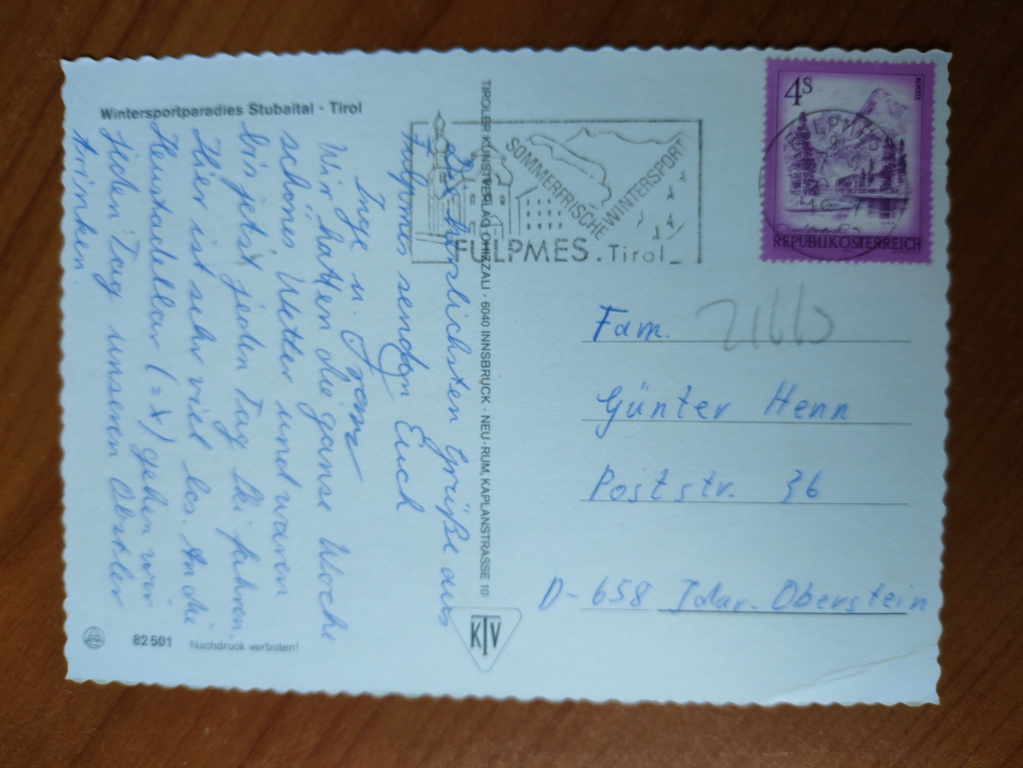 Wintersportparadies Stubaital - Tirol
Die herzlichsten Grüße aus
Fulpmes senden Euch
Inge u. Franz
Wir hatten die ganze Woche
schönes Wetter und waren
bis jetzt jeden Tag Ski fahren.
Hier ist sehr viel los. An die
Heustadelbar (=x) gehen wir
jeden Tag unseren Obstler
trinken.
82501 Nachdruck verboten!
TIROLER KUNSTVERLAG CHIZZALI · 6040 INNSBRUCK · NEU-RUM, KAPLANSTRASSE 10
KTV
SOMMERFRISCHE
WINTERSPORT
FULPMES. Tirol
4S
ALMSEE
REPUBLIK ÖSTERREICH
FULPMES
Fam.
Günter Henn
Poststr. 36
D-658 Idar. Oberstein